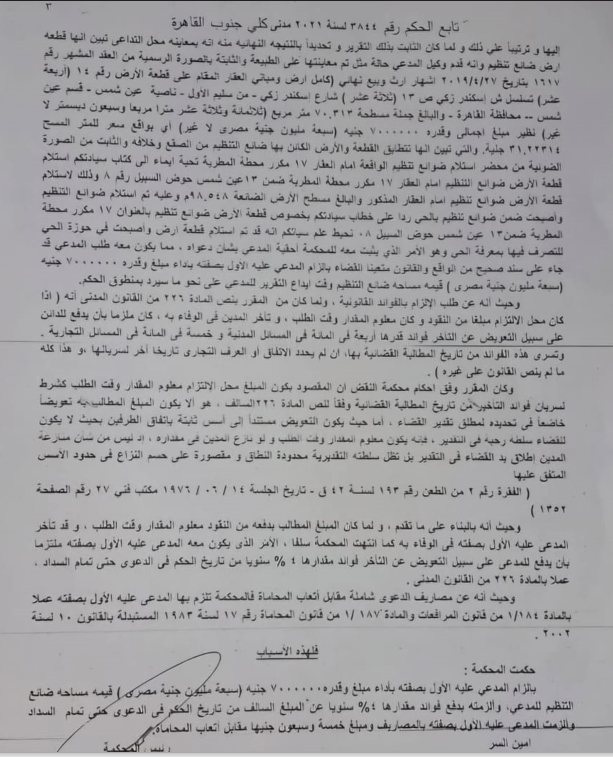 ٣
تابع الحكم رقم ٣٨٤٤ لسنة ٢٠٢١ مدنى كلي جنوب القاهرة
اليها و ترتيباً على ذلك و لما كان الثابت بذلك التقرير و تحديداً بالنتيجه النهائيه منه انه بمعاينه محل التداعى تبين انها قطعه
ارض ضائع تنظيم وانه قدم وكيل المدعي حالة مثل تم معاينتها على الطبيعة والثابتة بالصورة الرسمية من العقد المشهر رقم
١٦١٧ بتاريخ ٢٠١٩/٤/٢٧ اشهار ارث وبيع نهائي (كامل ارض ومباني العقار المقام على قطعة الأرض رقم ١٤ (أربعة
عشر) تسلسل ش إسكندر زكي ص ١٣ (ثلاثة عشر) شارع إسكندر زكي - من سليم الأول - ناصية عين شمس - قسم عين
شمس – محافظة القاهرة - والبالغ جملة مسطحة ٧٠.٣١٣ متر مربع (ثلاثمائة وثلاثة عشر مترا مربعا وسبعون ديسمتر لا
غير) نظير مبلغ اجمالى وقدره ٧٠٠٠٠٠٠ جنيه (سبعة مليون جنية مصرى لا غير) أي بواقع سعر للمتر المسح
٣١,٢٢٣١٤ جنية. والتي تبين انها تتطابق القطعة والأرض الكائن بها ضائع التنظيم من الصقع وخلافه والثابت من الصورة
الضوئية من محضر إستلام ضوائع تنظيم الواقعة امام العقار ١٧ مكرر محطة المطرية تحية ايماء الى كتاب سيادتكم استلام
قطعة الأرض ضوائع التنظيم امام العقار ١٧ مكرر محطة المطرية ضمن ١٣عين شمس حوض السبيل رقم ٨ وذلك لاستلام
قطعة الأرض ضوائع تنظيم امام العقار المذكور والبالغ مسطح الأرض الضائعة ٩٨,٥٤٨م وعليه تم استلام ضوائع التنظيم
وأصبحت ضمن ضوائع تنظيم بالحي ردا على خطاب سيادتكم بخصوص قطعة الأرض ضوائع تنظيم بالعنوان ١٧ مكرر محطة
المطرية ضمن١٣ عين شمس حوض السبيل ٠٨ نحيط علم سيادتكم انه قد تم استلام قطعة ارض وأصبحت في حوزة الحي
للتصرف فيها بمعرفة الحي وهو الأمر الذي يثبت معه للمحكمة أحقية المدعي بشان دعواه ، مما يكون معه طلب المدعي قد
جاء على سند صحيح من الواقع والقانون متعينا القضاء بالزام المدعي عليه الاول بصفته بأداء مبلغ وقدره ٧٠٠٠٠٠٠ جنيه
(سبعة مليون جنية مصرى ) قيمه مساحه ضائع التنظيم وقت ايداع التقرير للمدعي على نحو ما سيرد بمنطوق الحكم.
وحيث أنه عن طلب الإلزام بالفوائد القانونية ، ولما كان من المقرر بنص المادة ٢٢٦ من القانون المدني أنه ( اذا
كان محل الالتزام مبلغا من النقود و كان معلوم المقدار وقت الطلب ، و تأخر المدين في الوفاء به ، كان ملزما بأن يدفع للدائن
على سبيل التعويض عن التأخر فوائد قدرها أربعة في المائة فى المسائل المدنية و خمسة فى المائة فى المسائل التجارية .
وتسرى هذه الفوائد من تاريخ المطالبة القضائية بها، ان لم يحدد الاتفاق أو العرف التجارى تاريخا آخر لسريانها، و هذا كله
ما لم ينص القانون على غيره ) .
وكان المقرر وفق احكام محكمة النقض ان المقصود بكون المبلغ محل الالتزام معلوم المقدار وقت الطلب كشرط
لسريان فوائد التأخير من تاريخ المطالبة القضائية وفقاً لنص المادة ٢٢٦السالف ، هو ألا يكون المبلغ المطالب به تعويضاً
خاضعاً في تحديده لمطلق تقدير القضاء ، أما حيث يكون التعويض مستنداً إلى أسس ثابتة باتفاق الطرفين بحيث لا يكون
للقضاء سلطه رحبة فى التقدير ، فإنه يكون معلوم المقدار وقت الطلب و لو نازع المدين فى مقداره ، إذ ليس من شأن منازعة
المدين إطلاق يد القضاء فى التقدير بل تظل سلطته التقديرية محدودة النطاق و مقصورة على حسم النزاع فى حدود الأسس
المتفق عليها
( الفقرة رقم ٢ من الطعن رقم ١٩٣ لسنة ٤٢ ق - تاريخ الجلسة ١٤ / ٠٦ / ١٩٧٦ مكتب فني ٢٧ رقم الصفحة
١٣٥٢ )
وحيث أنه بالبناء على ما تقدم ، و لما كان المبلغ المطالب بدفعه من النقود معلوم المقدار وقت الطلب ، و قد تأخر
المدعى عليه الاول بصفته في الوفاء به كما انتهت المحكمة سلفا ، الأمر الذى يكون معه المدعى عليه الأول بصفته ملتزما
بأن يدفع للمدعى على سبيل التعويض عن التأخر فوائد مقدارها ٤ % سنويا من تاريخ الحكم في الدعوى حتى تمام السداد ،
عملا بالمادة ٢٢٦ من القانون المدني .
وحيث أنه عن مصاريف الدعوى شاملة مقابل أتعاب المحاماة فالمحكمة تلزم بها المدعى عليه الأول بصفته عملا
بالمادة ١/١٨٤ من قانون المرافعات والمادة ١٨٧ /١ من قانون المحاماة رقم ١٧ لسنة ١٩٨٣ المستبدلة بالقانون ١٠ لسنة
٢٠٠٢ .
فلهذه الأسباب
حكمت المحكمة :
بالزام المدعي عليه الأول بصفته بأداء مبلغ وقدره٧٠٠٠٠٠٠ جنيه (سبعة مليون جنية مصرى ) قيمه مساحه ضائع
التنظيم للمدعي، وألزمته بدفع فوائد مقدارها ٤% سنويا عن المبلغ السالف من تاريخ الحكم فى الدعوى حتى تمام السداد
وألزمت المدعى عليه الاول بصفته بالمصاريف ومبلغ خمسة وسبعون جنيها مقابل أتعاب المحاماة.
امين السر
رئيس المحكمة